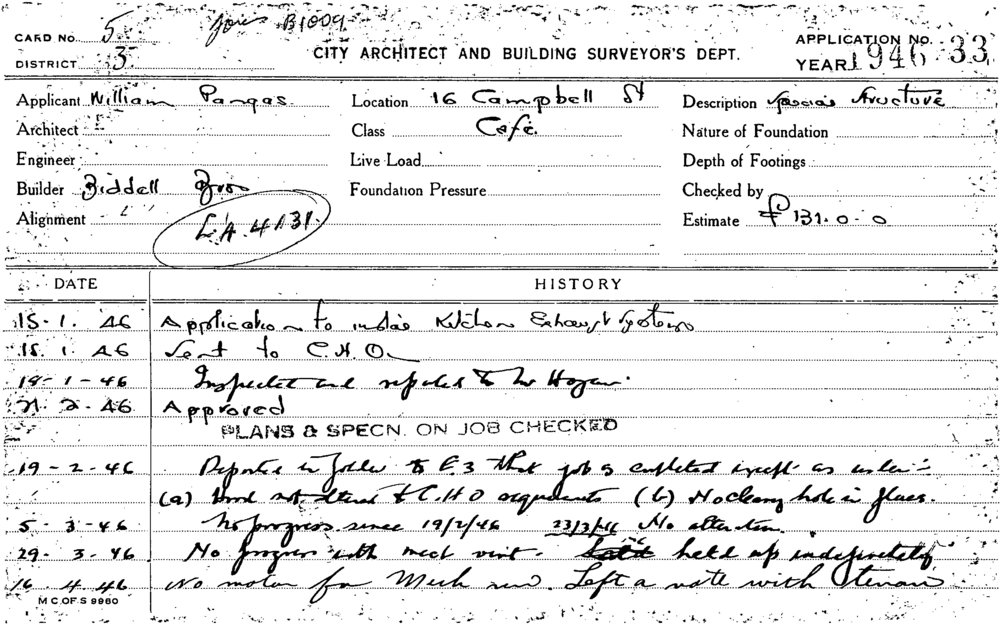 CARD NO. 5 B1009
DISTRICT 3
CITY ARCHITECT AND BUILDING SURVEYOR'S DEPT.
APPLICATION NO. 33
YEAR 1946
Applicant William Pangas Location 16 Campbell St Description Special Structure
Architect Class Café. Nature of Foundation
Engineer Live Load Depth of Footings
Builder Biddell Bros Foundation Pressure Checked by
Alignment L.A. 4131. Estimate £131.0.0
DATE HISTORY
15.1.46 Application to Kitchen Exhaust System
15.1.46 Sent to C.H.O.
18-1-46 Inspected and reported to Mr Hogan.
21.2.46 Approved
PLANS & SPECN. ON JOB CHECKED
19-2-46 Reported in folder to E.3 that job is completed except as under:-
(a) Hood not altered to C.H.O requirements (b) No cleaning hole in flues.
5-3-46 No progress since 19/2/46 23/3/46 No alteration
29.3.46 No progress with mech vent. held up indefinitely
16.4.46 No motor for Mech vent. Left a note with tenant
M C. OF S 9980